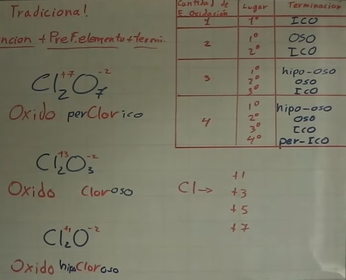 Tradicional
ncion + Pref.elemento + termi.
+7 -2
Cl2O7
Oxido perClorico
+3 -2
Cl2O3
Oxido Cloroso
+1 -2
Cl2O
Oxido hipoCloroso
Cantidad de E. Oxidación Lugar Terminacion
1 1º ICO
2 1º OSO
2º ICO
3 1º hipo-oso
2º oso
3º ICO
4 1º hipo-oso
2º oso
3º ICO
4º per-ICO
Cl→ +1
+3
+5
+7